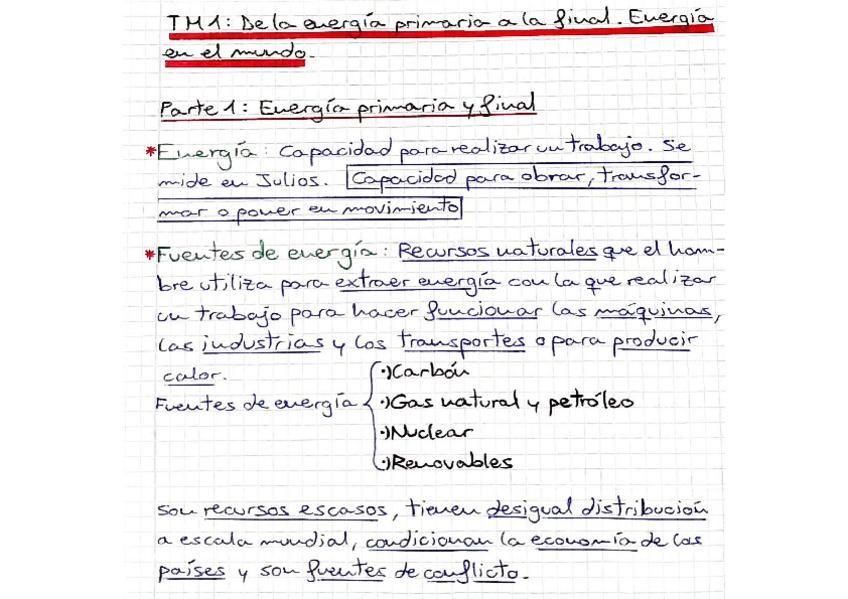 TM1: De la energía primaria a la final. Energía
en el mundo.
Parte 1: Energía primaria y final
*Energía: Capacidad para realizar un trabajo. Se
mide en Julios. Capacidad para obrar, transfor-
mar o poner en movimiento
*Fuentes de energía: Recursos naturales que el hom-
bre utiliza para extraer energía con la que realizar
un trabajo para hacer funcionar las máquinas,
las industrias y los transportes o para producir
calor.
Fuentes de energía
·)Carbón
·)Gas natural y petróleo
·)Nuclear
·)Renovables
Son recursos escasos, tienen desigual distribución
a escala mundial, condicionan la economía de los
países y son fuentes de conflicto.